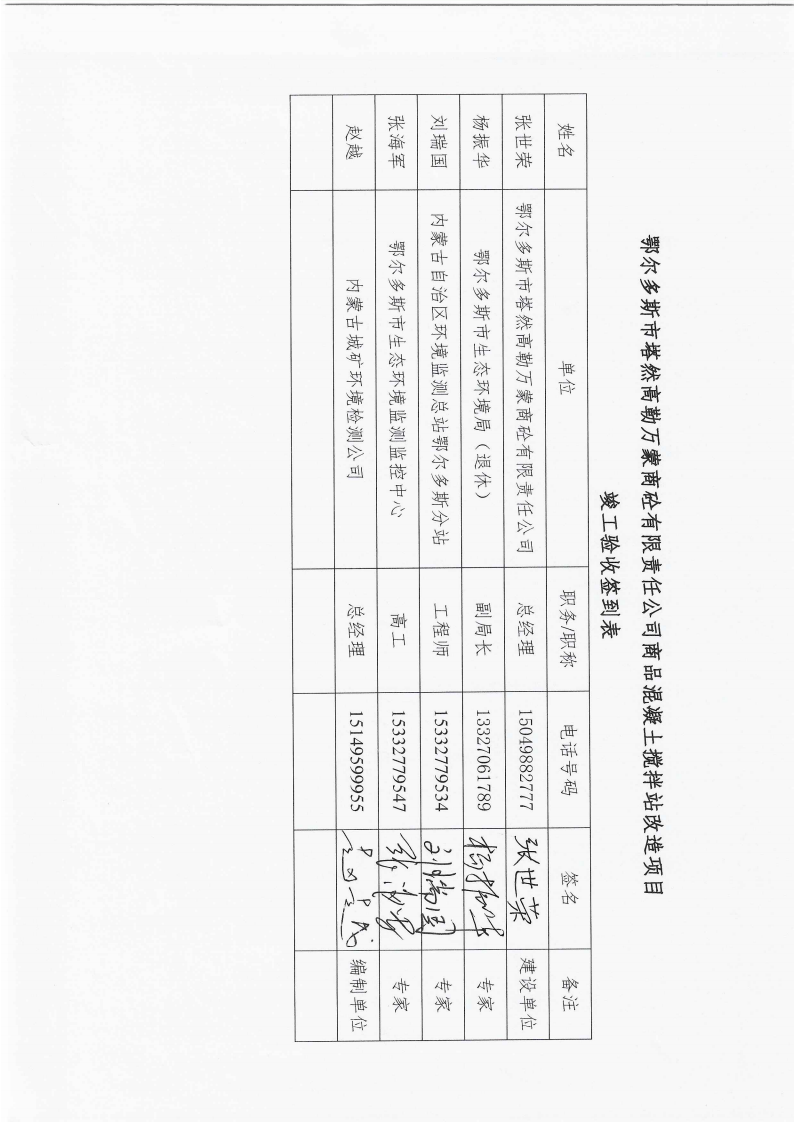 鄂尔多斯市塔然高勒万蒙商砼有限责任公司商品混凝土搅拌站改造项目
竣工验收签到表
姓名 单位 职务/职称 电话号码 签名 备注
张世荣 鄂尔多斯市塔然高勒万蒙商砼有限责任公司 总经理 15049882777 张世荣 建设单位
杨振华 鄂尔多斯市生态环境局（退休） 副局长 13327061789 杨振华 专家
刘瑞国 内蒙古自治区环境监测总站鄂尔多斯分站 工程师 15332779534 刘瑞国 专家
张海军 鄂尔多斯市生态环境监测监控中心 高工 15332779547 张海军 专家
赵越 内蒙古城矿环境检测公司 总经理 15149599955 编制单位